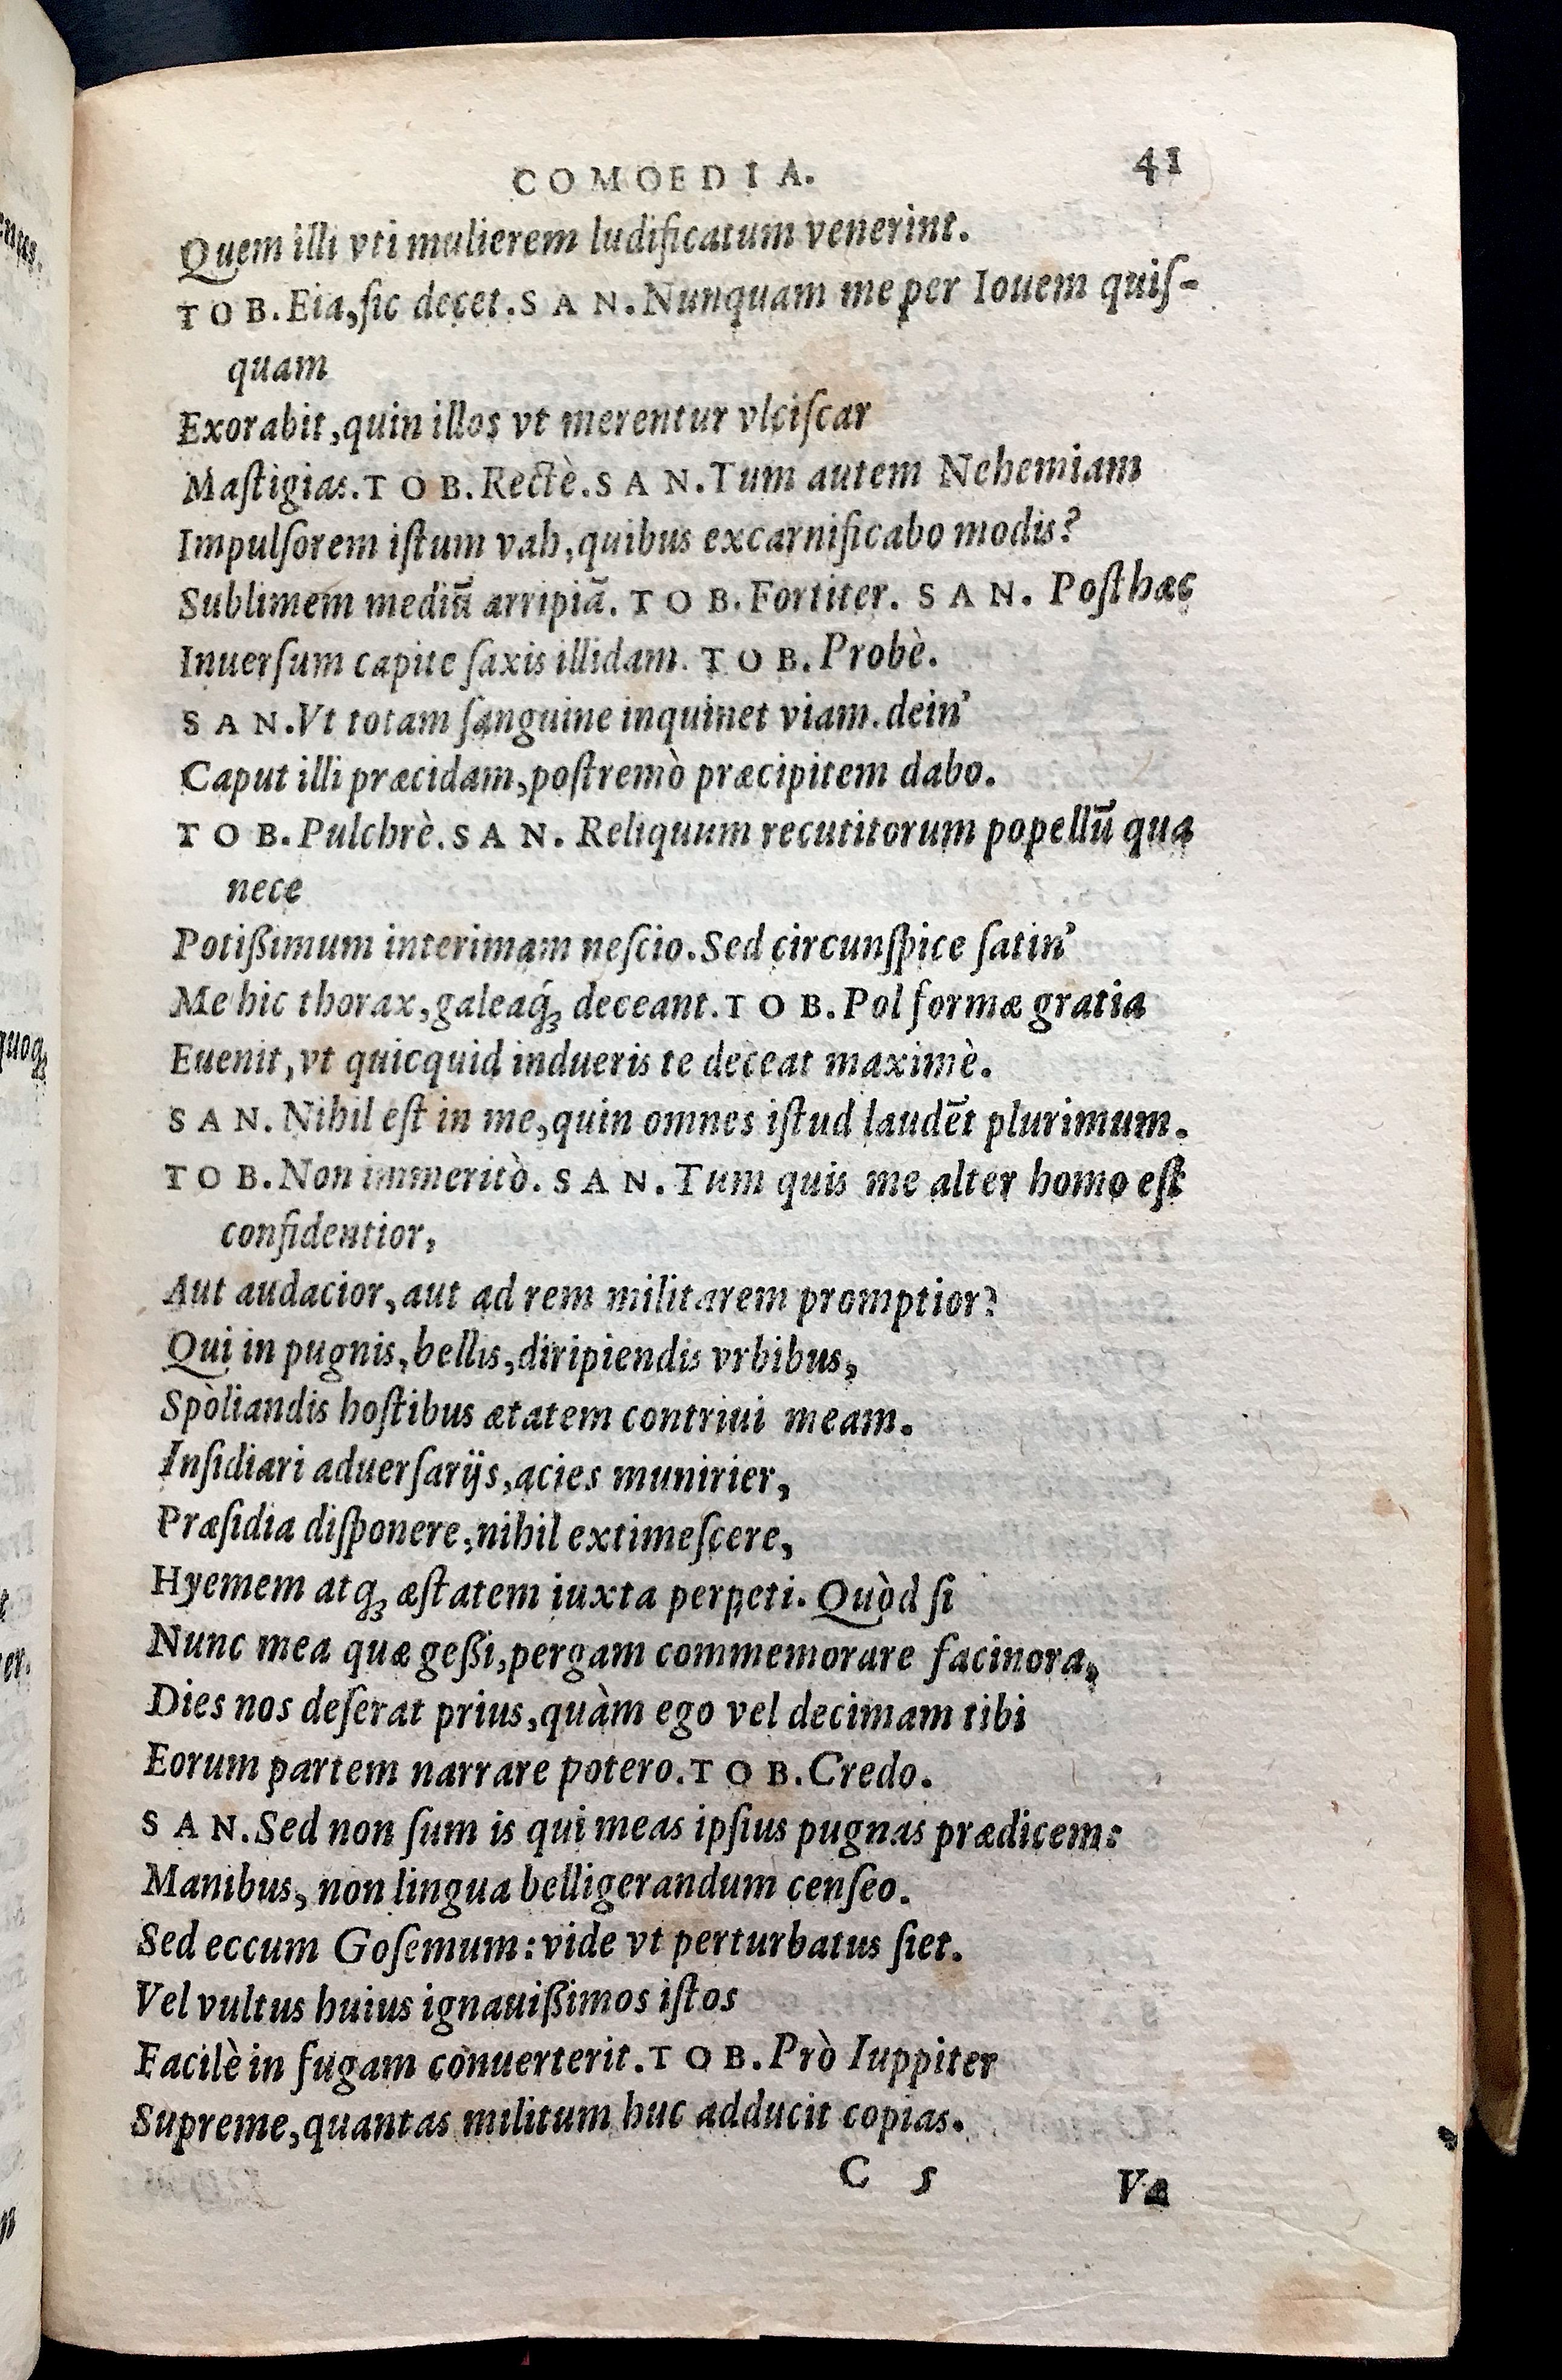 COMOEDIA. 41
Quem illi vti mulierem ludificatum venerint.
TOB. Eia, ſic decet. SAN. Nunquam me per Iouem quiſ-
quam
Exorabit, quin illos vt merentur vlciſcar
Maſtigias. TOB. Rectè. SAN. Tum autem Nehemiam
Impulſorem iſtum vah, quibus excarnificabo modis?
Sublimem mediū arripiã. TOB. Fortiter. SAN. Poſt hæc
Inuerſum capite ſaxis illidam. TOB. Probè.
SAN. Vt totam ſanguine inquinet viam. dein'
Caput illi præcidam, poſtremò præcipitem dabo.
TOB. Pulchrè. SAN. Reliquum recutitorum popellū qua
nece
Potißimum interimam neſcio. Sed circunſpice ſatin'
Me hic thorax, galeaq́ꝫ deceant. TOB. Pol formæ gratia
Euenit, vt quicquid indueris te deceat maximè.
SAN. Nihil eſt in me, quin omnes iſtud laudēt plurimum.
TOB. Non immeritò. SAN. Tum quis me alter homo eſt
confidentior,
Aut audacior, aut ad rem militarem promptior?
Qui in pugnis, bellis, diripiendis vrbibus,
Spòliandis hoſtibus ætatem contriui meam.
Inſidiari aduerſarijs, acies munirier,
Præſidia diſponere, nihil extimeſcere,
Hyemem atqꝫ æſtatem iuxta perpeti. Quòd ſi
Nunc mea quæ geßi, pergam commemorare facinora,
Dies nos deſerat prius, quàm ego vel decimam tibi
Eorum partem narrare potero. TOB. Credo.
SAN. Sed non ſum is qui meas ipſius pugnas prædicem:
Manibus, non lingua belligerandum cenſeo.
Sed eccum Goſemum: vide vt perturbatus ſiet.
Vel vultus huius ignauißimos iſtos
Facilè in fugam conuerterit. TOB. Prò Iuppiter
Supreme, quantas militum huc adducit copias.
C 5 Væ